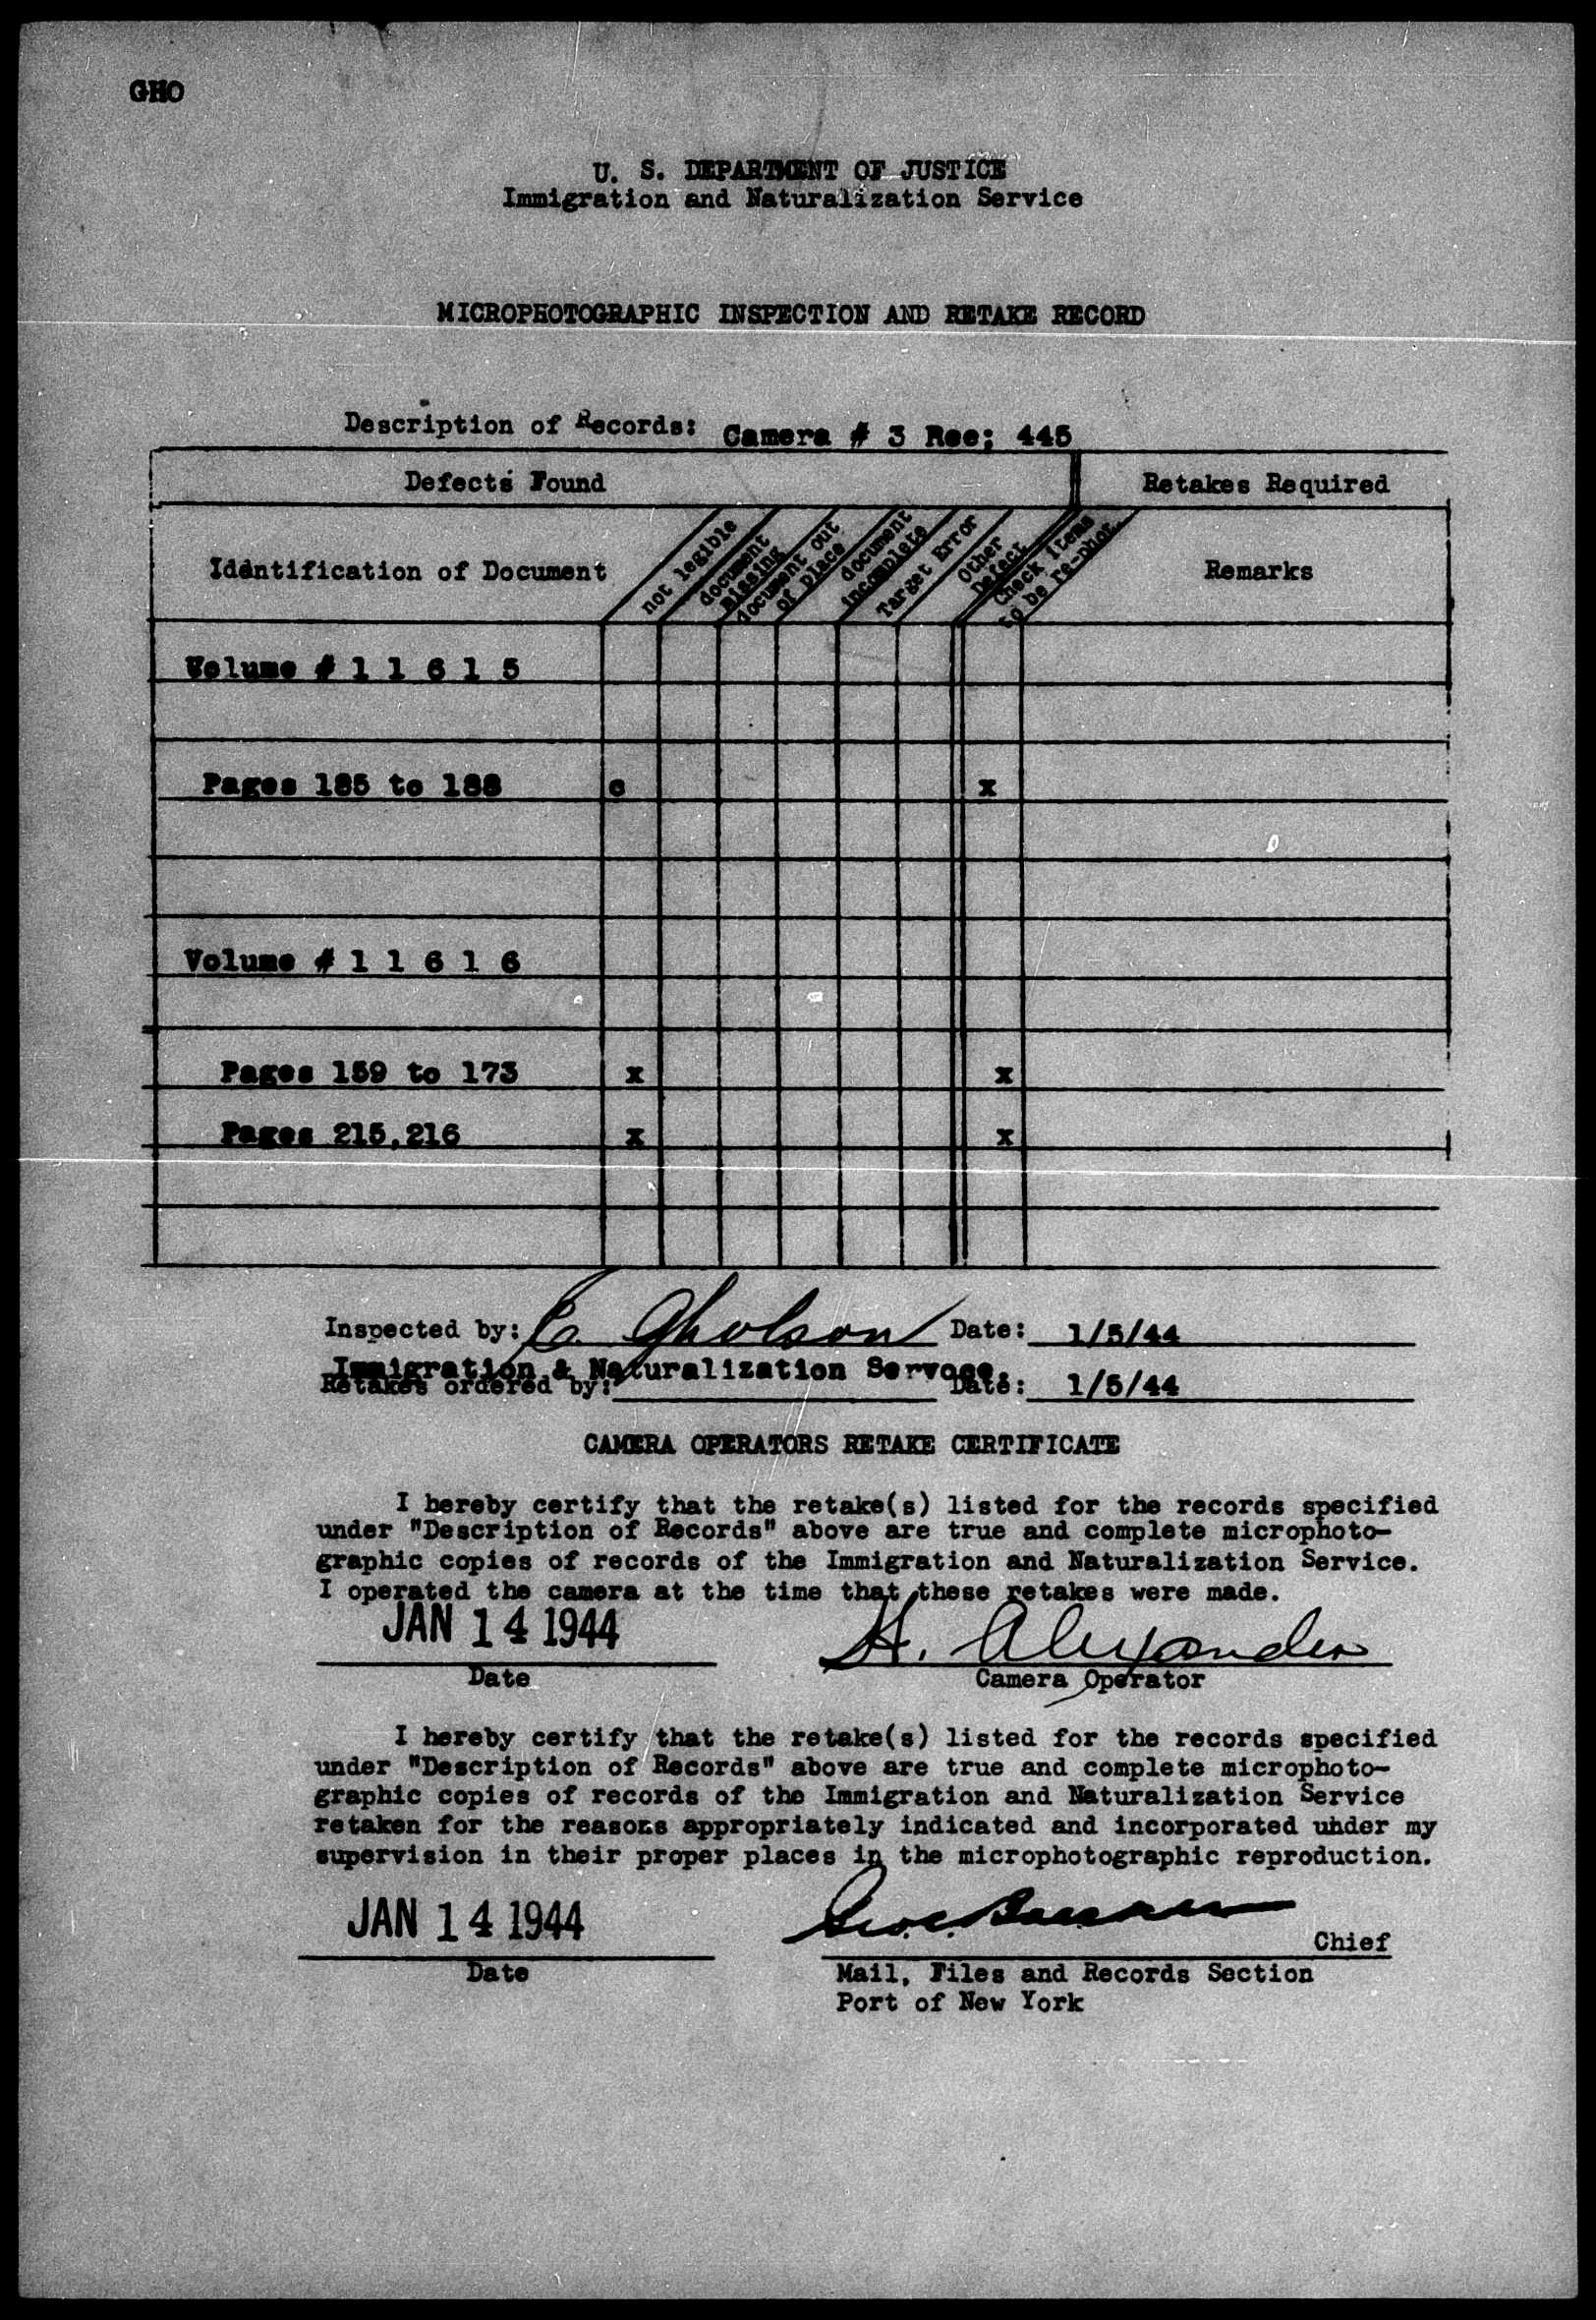 GHO
U. S. DEPARTMENT OF JUSTICE
Immigration and Naturalization Service
MICROPHOTOGRAPHIC INSPECTION AND RETAKE RECORD
Description of Records: Camera # 3 Ree; 445
Defects Found Retakes Required
Identification of Document
not legible
document
missing
document out
of place
document
incomplete
Target Error
Other
Defect
Check items
to be re-phot.
Remarks
Volume # 1 1 6 1 5
Pages 185 to 188 c x
Volume # 1 1 6 1 6
Pages 159 to 173 x x
Pages 215,216 x x
Inspected by: C. Gholson Date: 1/5/44
Immigration & Naturalization Servoce.
Retakes ordered by: Date: 1/5/44
CAMERA OPERATORS RETAKE CERTIFICATE
I hereby certify that the retake(s) listed for the records specified
under "Description of Records" above are true and complete microphoto-
graphic copies of records of the Immigration and Naturalization Service.
I operated the camera at the time that these retakes were made.
JAN 14 1944 H. Alexander
Date Camera Operator
I hereby certify that the retake(s) listed for the records specified
under "Description of Records" above are true and complete microphoto-
graphic copies of records of the Immigration and Naturalization Service
retaken for the reasons appropriately indicated and incorporated uhder my
supervision in their proper places in the microphotographic reproduction.
JAN 14 1944 Chief
Date Mail, Files and Records Section
Port of New York